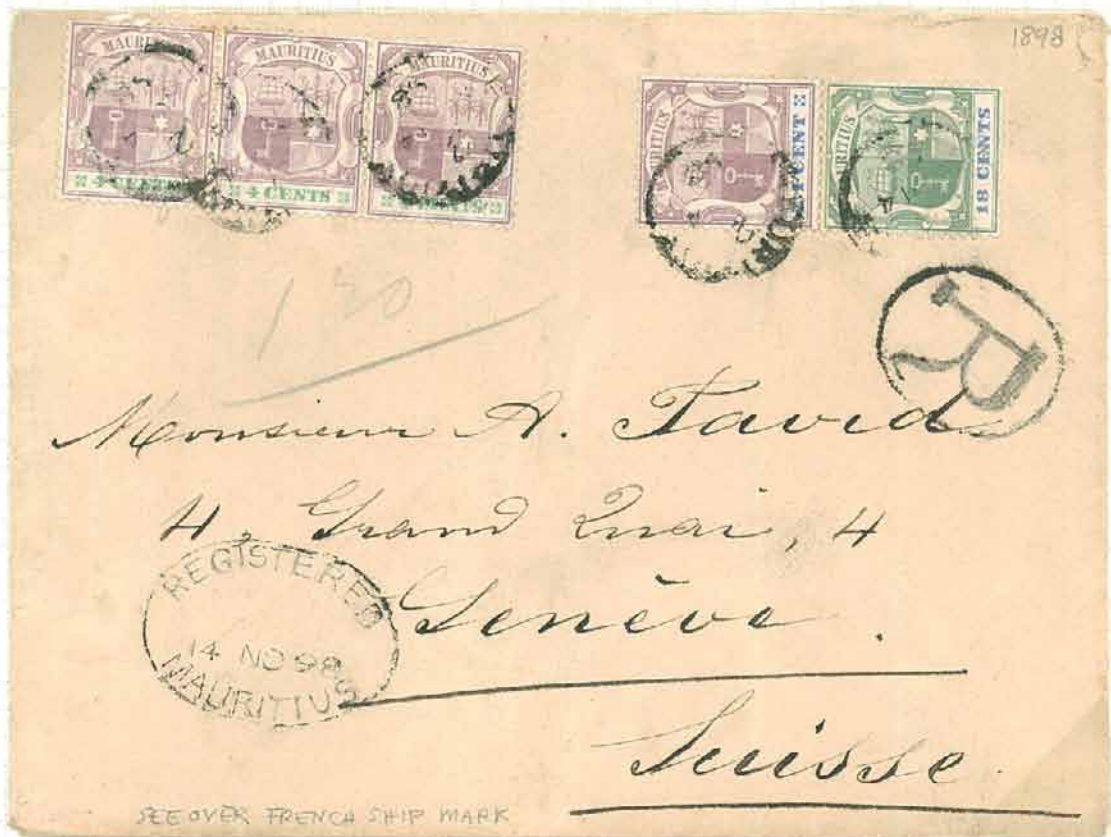 1898
MAURITIUS MAURITIUS MAURITIUS
4 CENTS 4 CENTS
MAURITIUS CENT
MAURITIUS 18 CENTS
R
Monsieur A. Tavid
4, Grand Quai, 4
Genève.
Suisse.
REGISTERED
14 NO 98
MAURITIUS
SEE OVER FRENCH SHIP MARK